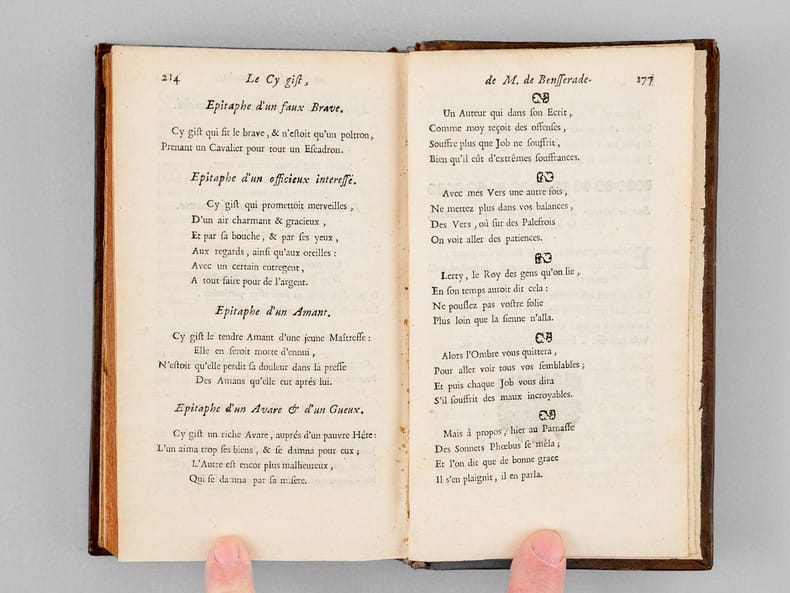 214 Le Cy giſt,
Epitaphe d'un faux Brave.
Cy giſt qui fit le brave, & n'eſtoit qu'un poltron,
Prenant un Cavalier pour tout un Eſcadron.
Epitaphe d'un officieux intereſſé.
Cy giſt qui promettoit merveilles,
D'un air charmant & gracieux,
Et par ſa bouche, & par ſes yeux,
Aux regards, ainſi qu'aux oreilles:
Avec un certain entregent,
A tout faire pour de l'argent.
Epitaphe d'un Amant.
Cy giſt le tendre Amant d'une jeune Maîtreſſe:
Elle en ſeroit morte d'ennui,
N'eſtoit qu'elle perdit ſa douleur dans la preſſe
Des Amans qu'elle eut aprés lui.
Epitaphe d'un Avare & d'un Gueux.
Cy giſt un riche Avare, auprés d'un pauvre Hére:
L'un aima trop ſes biens, & ſe damna pour eux;
L'Autre eſt encor plus malheureux,
Qui ſe damna par ſa miſere.
de M. de Benſſerade. 177
Un Auteur qui dans ſon Ecrit,
Comme moy reçoit des offenſes,
Souffre plus que Job ne ſouffrit,
Bien qu'il eſt d'extrêmes ſouffrances.
Avec mes Vers une autre fois,
Ne mettez plus dans vos balances,
Des Vers, où ſur des Palefrois
On voit aller des patiences.
Lerty, le Roy des gens qu'on lie,
En ſon temps auroit dit cela:
Ne pouſſez pas voſtre folie
Plus loin que la ſienne n'alla.
Alors l'Ombre vous quittera,
Pour aller voir tous vos ſemblables;
Et puis chaque Job vous dira
S'il ſouffrit des maux incroyables.
Mais à propos, hier au Parnaſſe
Des Sonnets Phœbus ſe mêla;
Et l'on dit que de bonne grace
Il s'en plaignit, il en parla.